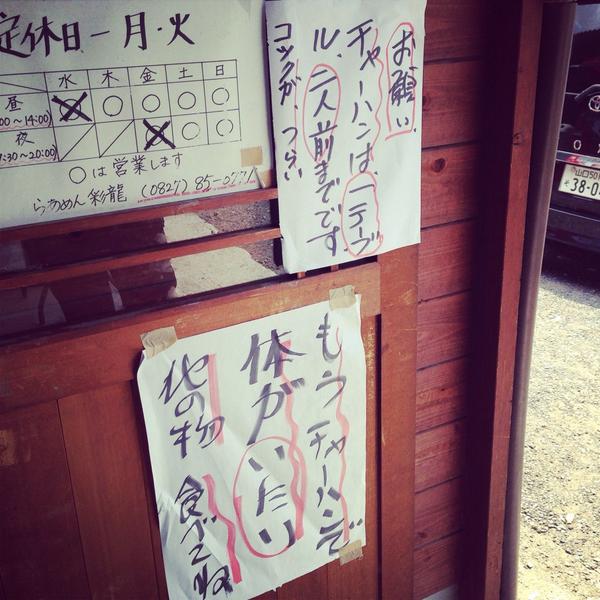 定休日ー月・火
水 木 金 土 日
昼
00～14:00)
夜
7:30~20:00)
○は営業します
らぁめん 彩龍 (0827) 85-077
お願い、
チャーハンは、一テーブ
ル、二人前までです。
コックが、つらい
もうチャーハンで
体がいたい
他の物 食べてね
38-0